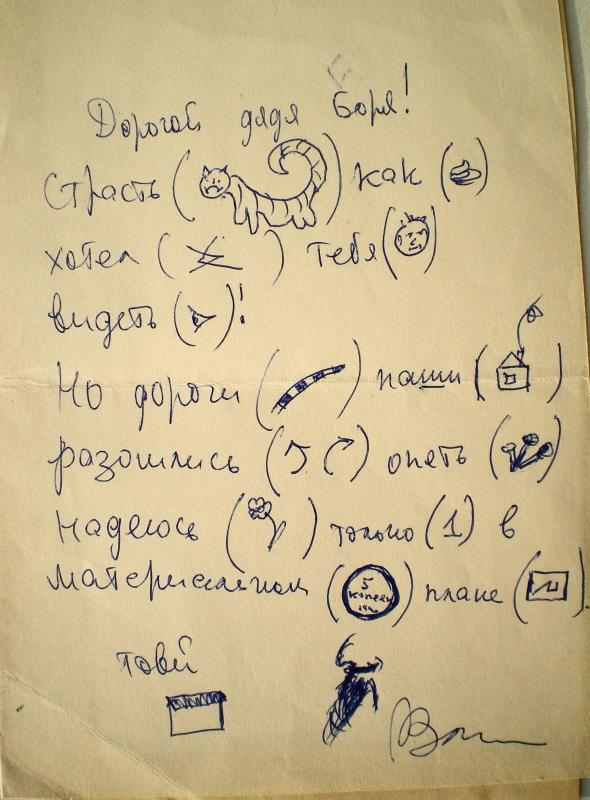 Дорогой дядя Боря!
Страсть ( ) как ( )
хотел ( ) тебя ( )
видеть ( )!
Но дороги ( ) наши ( )
разошлись ( ) опять ( )
надеюсь ( ) только (1) в
материальном (5 копеек) плане ( ).
твой